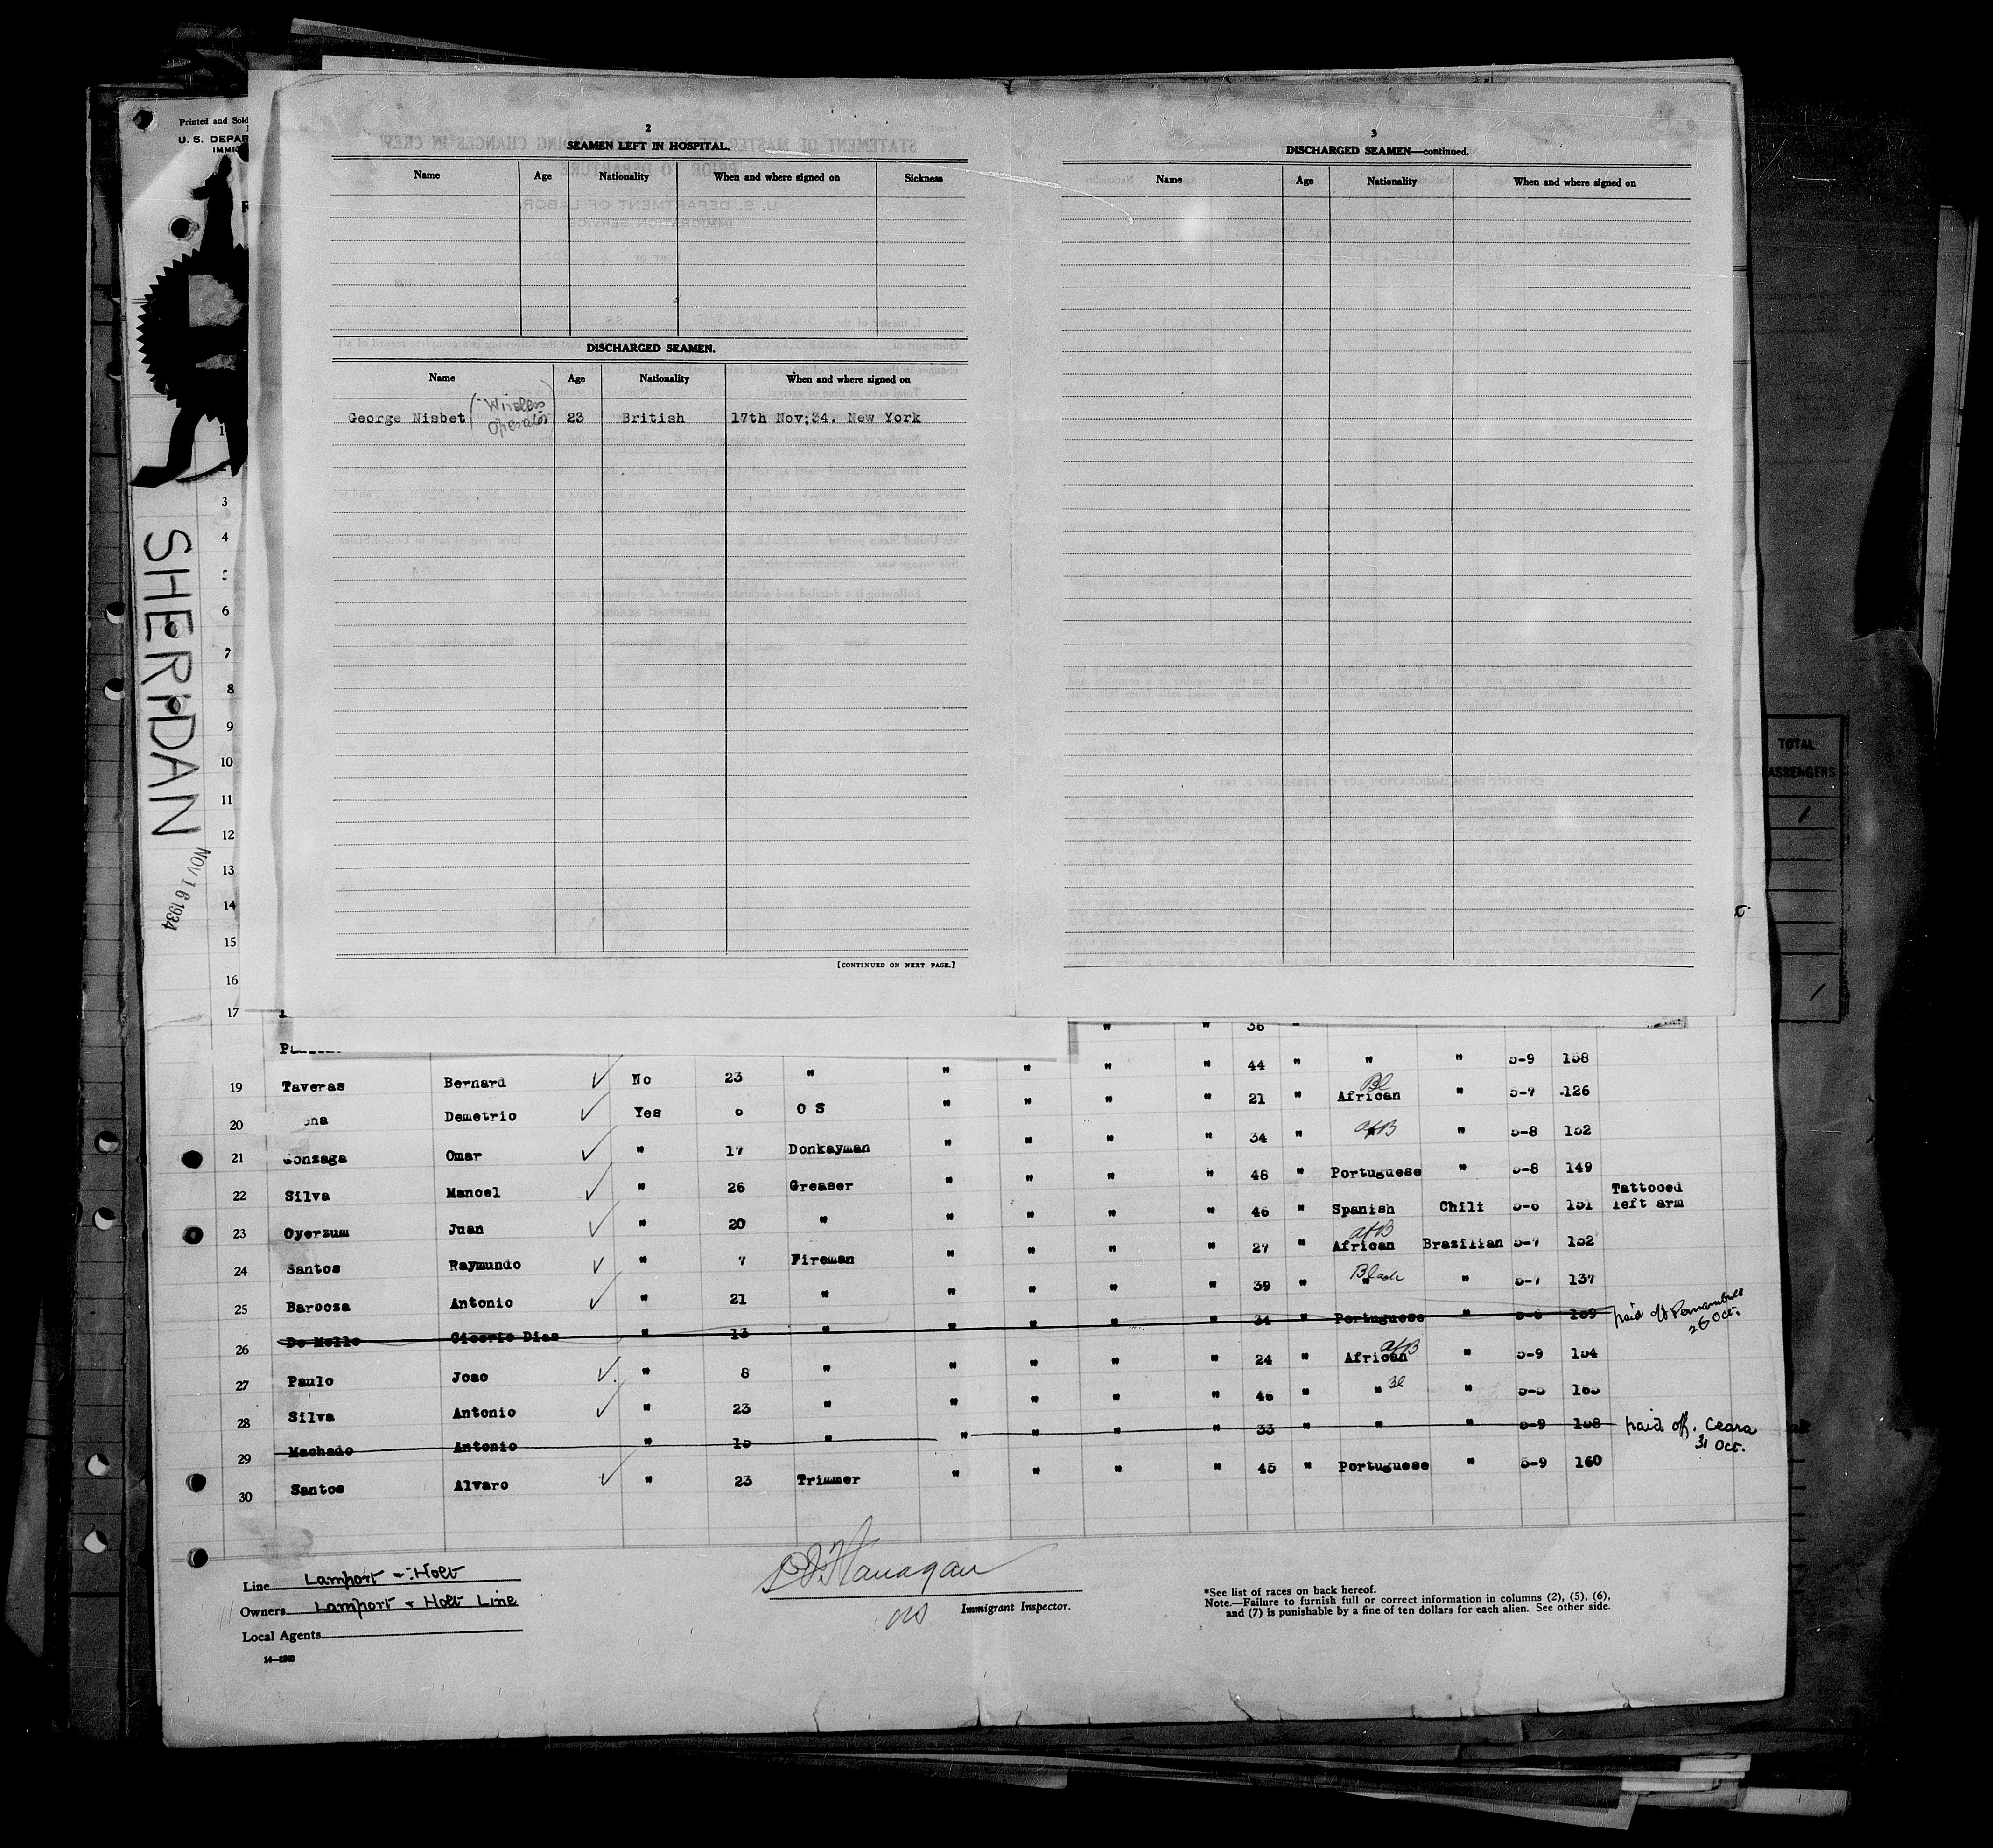 Printed and Sold
U. S. DEPAR
IMMIG
SHERIDAN
NOV 16 1934
2
SEAMEN LEFT IN HOSPITAL.
Name Age Nationality When and where signed on Sickness
DISCHARGED SEAMEN.
Name Age Nationality When and where signed on
George Nisbet (Wireless Operator) 23 British 17th Nov;34. New York
[CONTINUED ON NEXT PAGE.]
3
DISCHARGED SEAMEN—continued.
Name Age Nationality When and where signed on
TOTAL
PASSENGERS
1
1
1
3
4
5
6
7
8
9
10
11
12
13
14
15
16
17
" " 36 "
44 " " " 5-9 158
19 Taveras Bernard ✓ No 23 " " " " " 21 " African Bl " 5-7 126
20 ena Demetrio ✓ Yes 6 O S " " " " 34 " Af B " 5-8 152
21 Gonzaga Omar ✓ " 17 Donkayman " " " " 48 " Portuguese " 5-8 149
22 Silva Manoel ✓ " 26 Greaser " " " " 46 " Spanish Chili 5-6 151 Tattooed left arm
23 Oyerzum Juan ✓ " 20 " " " " " 27 " African Af B Brazilian 5-7 152
24 Santos Raymundo ✓ " 7 Fireman " " " " 39 " " Black " 5-7 137
25 Barbosa Antonio ✓ " 21 " " " " " 34 " Portuguese " 5-6 159 paid off Pernambuco 26 Oct.
26 De Mello Cicerio Dias " 13 " " " " " 24 " African Af B " 5-9 154
27 Paulo Joao ✓ " 8 " " " " " 46 " " Bl " 5-5 165
28 Silva Antonio ✓ " 23 " " " " " 33 " " " 5-9 158 paid off. Ceara 31 Oct.
29 Machado Antonio " 15 " " " " " 45 " Portuguese " 5-9 160
30 Santos Alvaro ✓ " 23 Trimmer "
Line Lamport & Holt
Owners Lamport & Holt Line
Local Agents
14—1240
Flanagan
Immigrant Inspector.
*See list of races on back hereof.
Note.—Failure to furnish full or correct information in columns (2), (5), (6),
and (7) is punishable by a fine of ten dollars for each alien. See other side.